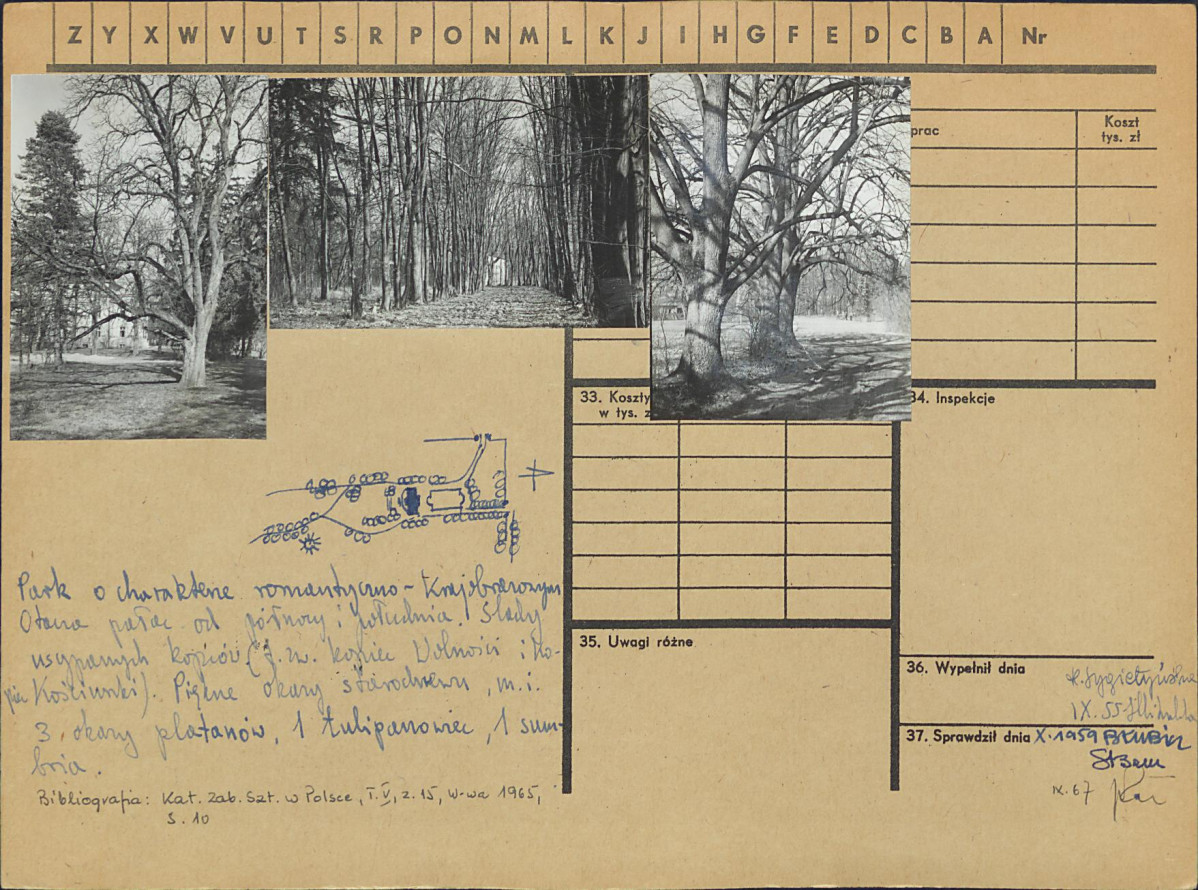 Z Y X W V U T S R P O N M L K J I H G F E D C B A Nr
prac
Koszt
tys. zł
33. Koszty
w tys. z
34. Inspekcje
Park o charakterze romantyczno-krajobrazowym
Otacza pałac od północy i południa. Ślady
usypanych kopców (t.zw. kopiec Wolności i Ko-
piec Kościuszki). Piękne okazy starodrzewu, m.i.
3 okazy platanów, 1 tulipanowiec, 1 sum-
bria.
Bibliografia: Kat. Zab. Szt. w Polsce, T. V, z. 15, W-wa 1965,
S. 10
35. Uwagi różne
36. Wypełnił dnia
IX. 55
37. Sprawdził dnia X. 1959
IX. 67